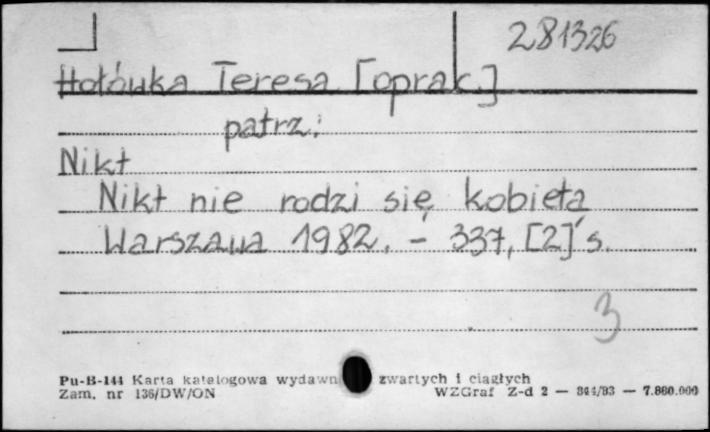 281326
Hołówka Teresa [oprac.]
patrz:
Nikt
Nikt nie rodzi się kobietą
Warszawa 1982. - 337, [2] s.
3
Pu-B-144 Karta katalogowa wydawn zwartych i ciągłych
Zam. nr 136/DW/ON WZGraf Z-d 2 — 844/83 — 7.860.000